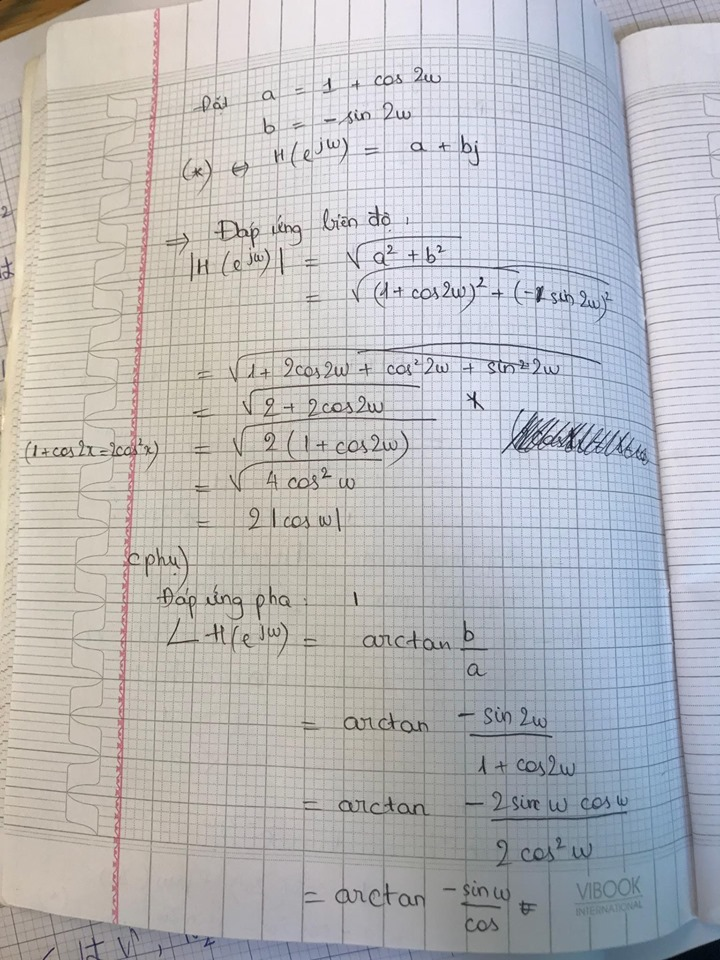 Đặt a = 1 + cos 2ω
b = -sin 2ω
(*) ⇔ H(e^jω) = a + bj
⇒ Đáp ứng biên độ:
|H(e^jω)| = √(a² + b²)
= √((1 + cos2ω)² + (- sin 2ω)²)
= √(1 + 2cos2ω + cos²2ω + sin²2ω)
= √(2 + 2cos2ω) *
(1+cos2x=2cos²x) = √(2(1 + cos2ω))
= √(4cos²ω)
= 2|cosω|
phụ)
Đáp ứng pha:
∠H(e^jω) = arctan b/a
= arctan -sin2ω/(1 + cos2ω)
= arctan -2sinω cosω/(2cos²ω)
= arctan -sinω/cos =
VIBOOK
INTERNATIONAL